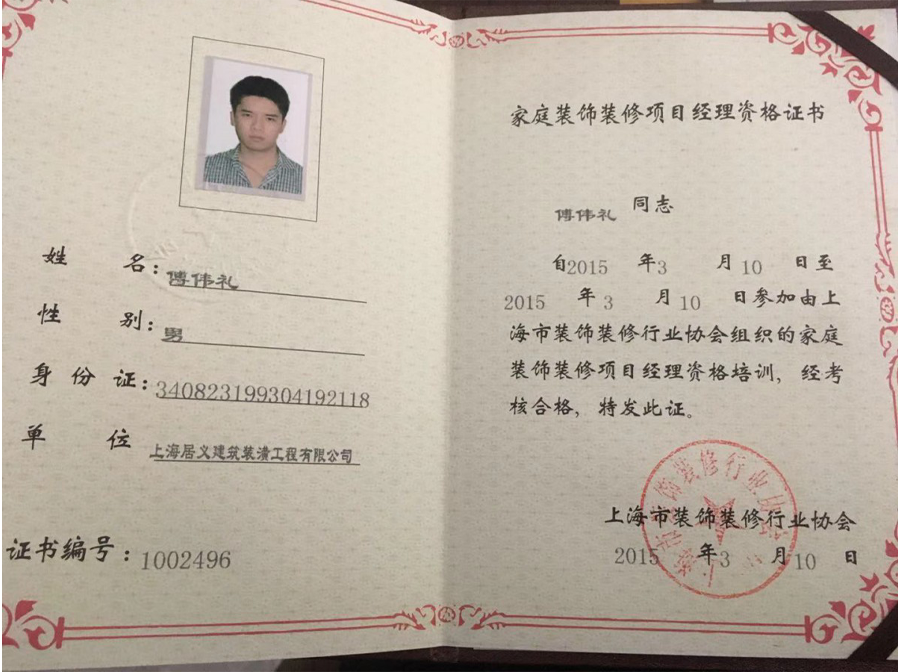 姓 名：傅伟礼
性 别：男
身 份 证：340823199304192118
单 位 上海居义建筑装潢工程有限公司
证书编号：1002496
家庭装饰装修项目经理资格证书
傅伟礼 同志
自2015 年3 月10 日至
2015 年3 月10 日参加由上
海市装饰装修行业协会组织的家庭
装饰装修项目经理资格培训，经考
核合格，特发此证。
上海市装饰装修行业协会
2015 年3 月10 日
上海市装饰装修行业协会